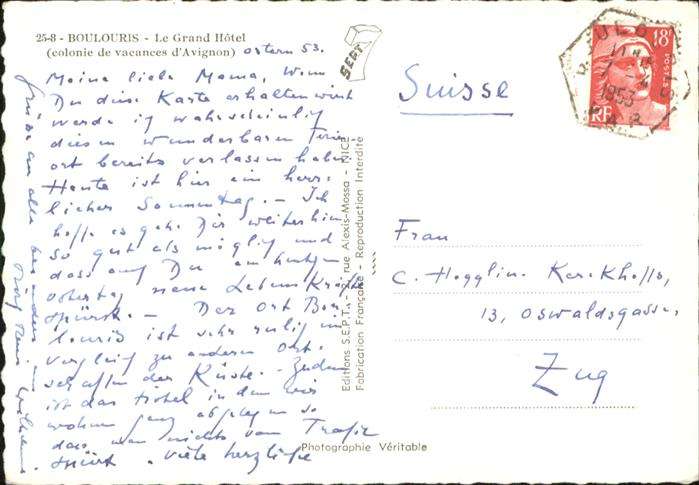 25-8 - BOULOURIS - Le Grand Hôtel
(colonie de vacances d'Avignon)
Ostern 53.
Meine liebe Mama, Wenn
Du diese Karte erhalten wirst
werde ich wahrscheinlich
diesen wunderbaren Ferien
ort bereits verlassen haben
Heute ist hier ein herr-
licher Sonnentag. - Ich
hoffe es gehe Dir weiterhin
so gut als möglich und
dass auf Du am heutigen
Ostertag neue Lebenskräfte
spürst. - Der Ort Bou
louris ist sehr ruhig im
Vergleich zu anderen Ort-
schaften der Küste. Zudem
ist das Hotel in dem wir
wohnen ganz abgelegen so
dass man nichts vom Trafic
spürt. Viele herzliche
Grüsse an alle besonders
SEPT
Editions S.E.P.T.A. rue Alexis-Mossa - NICE
Fabrication Française - Reproduction Interdite
Photographie Véritable
Suisse
18F
POSTES
RF
1953
VAR
Frau
C. Hegglin-Kerckhoffs,
13, Oswaldsgasse,
Zug